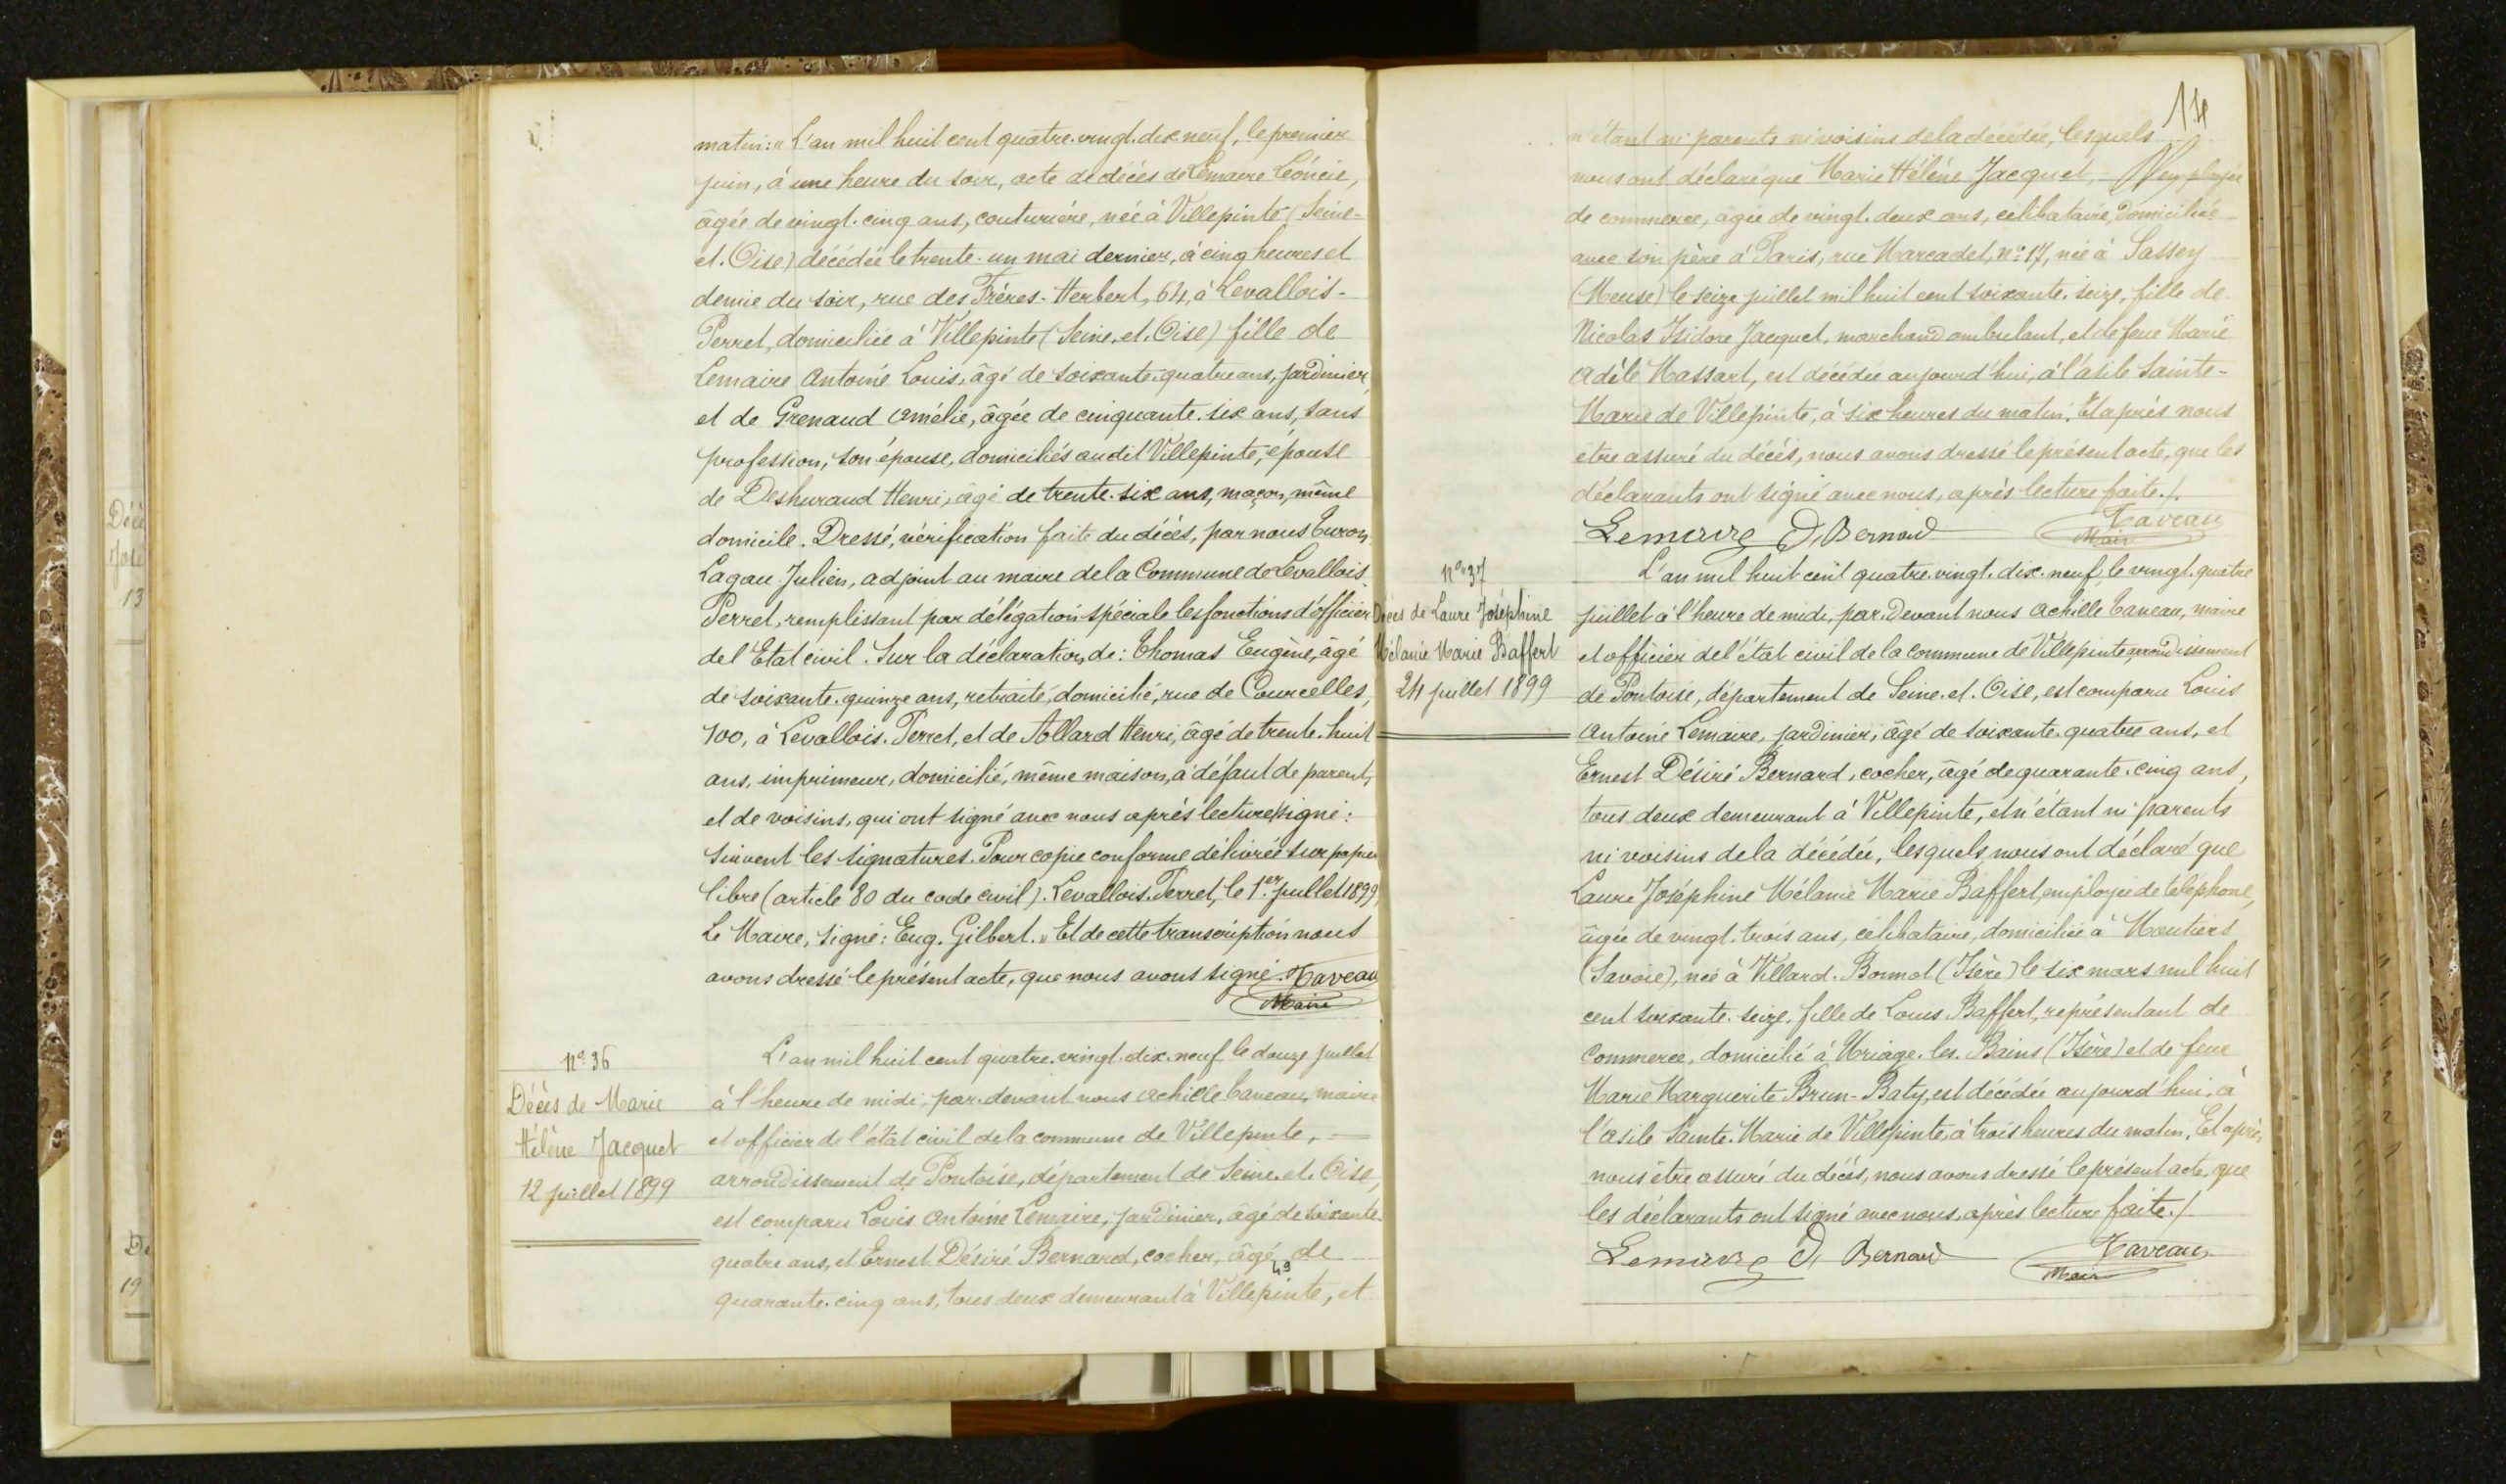 matin: « L'an mil huit cent quatre-vingt-dix-neuf, le premier
juin, à une heure du soir, acte de décès de Lemaire Léoncie,
âgée de vingt-cinq ans, couturière, née à Villepinte (Seine-
et-Oise) décédée le trente-un mai dernier, à cinq heures et
demie du soir, rue des Frères-Herbert, 64, à Levallois-
Perret, domiciliée à Villepinte (Seine-et-Oise) fille de
Lemaire Antoine Louis, âgé de soixante-quatre ans, jardinier,
et de Grenaud Amélie, âgée de cinquante-six ans, sans
profession, son épouse, domiciliés audit Villepinte, épouse
de Deshuraud Henri, âgé de trente-six ans, maçon, même
domicile. Dressé, vérification faite du décès, par nous
Lagau Julien, adjoint au maire de la Commune de Levallois-
Perret, remplissant par délégation spéciale les fonctions d'officier
de l'Etat civil. Sur la déclaration de: Thomas Eugène, âgé
de soixante-quinze ans, retraité, domicilié, rue de Courcelles,
100, à Levallois-Perret, et de Henri, âgé de trente-huit
ans, imprimeur, domicilié, même maison, à défaut de parents,
et de voisins, qui ont signé avec nous après lecture signé:
Suivent les signatures. Pour copie conforme délivrée sur papier
libre (article 80 du code civil). Levallois-Perret, le 1er juillet 1899,
Le Maire, signé: Eug. Gilbert. » Et de cette transcription nous
avons dressé le présent acte, que nous avons signé. Taveau
Maire
N° 36
Décès de Marie
Hélène Jacquet
12 juillet 1899
L'an mil huit cent quatre-vingt-dix-neuf le douze juillet
à l'heure de midi, par-devant nous Achille Taveau, maire
et officier de l'état civil de la commune de Villepinte,
arrondissement de Pontoise, département de Seine-et-Oise,
est comparu Louis Antoine Lemaire, jardinier, âgé de soixante-
quatre ans, et Ernest Désiré Bernard, cocher, âgé de
49
quarante-cinq ans, tous deux demeurant à Villepinte, et
14
n'étant ni parents ni voisins de la décédée, lesquels
nous ont déclaré que Marie Hélène Jacquet, employée
de commerce, âgée de vingt-deux ans, célibataire, domiciliée
avec son père à Paris, rue Marcadet, n° 17, née à Sassey
(Meuse) le seize juillet mil huit cent soixante-seize, fille de
Nicolas Isidore Jacquet, marchand ambulant, et de feue Marie
Adèle Massart, est décédée aujourd'hui, à l'asile Sainte-
Marie de Villepinte, à six heures du matin. Et après nous
être assuré du décès, nous avons dressé le présent acte, que les
déclarants ont signé avec nous, après lecture faite./.
Lemaire D. Bernard Taveau
Maire
N° 37
Décès de Laure Joséphine
Mélanie Marie Baffert
24 juillet 1899
L'an mil huit cent quatre-vingt-dix-neuf, le vingt-quatre
juillet à l'heure de midi, par-devant nous Achille Taveau, maire
et officier de l'état civil de la commune de Villepinte, arrondissement
de Pontoise, département de Seine-et-Oise, est comparu Louis
Antoine Lemaire, jardinier, âgé de soixante-quatre ans, et
Ernest Désiré Bernard, cocher, âgé de quarante-cinq ans,
tous deux demeurant à Villepinte, et n'étant ni parents
ni voisins de la décédée, lesquels nous ont déclaré que
Laure Joséphine Mélanie Marie Baffert, employée de téléphone,
âgée de vingt-trois ans, célibataire, domiciliée à Moutiers
(Savoie), née à Villard-Bonnot (Isère) le six mars mil huit
cent soixante-seize, fille de Louis Baffert, représentant de
Commerce, domicilié à Uriage-les-Bains (Isère) et de feue
Marie Marguerite Brun-Baty, est décédée aujourd'hui, à
l'asile Sainte-Marie de Villepinte, à trois heures du matin. Et après
nous être assuré du décès, nous avons dressé le présent acte, que
les déclarants ont signé avec nous, après lecture faite./.
Lemaire D. Bernard Taveau
Maire